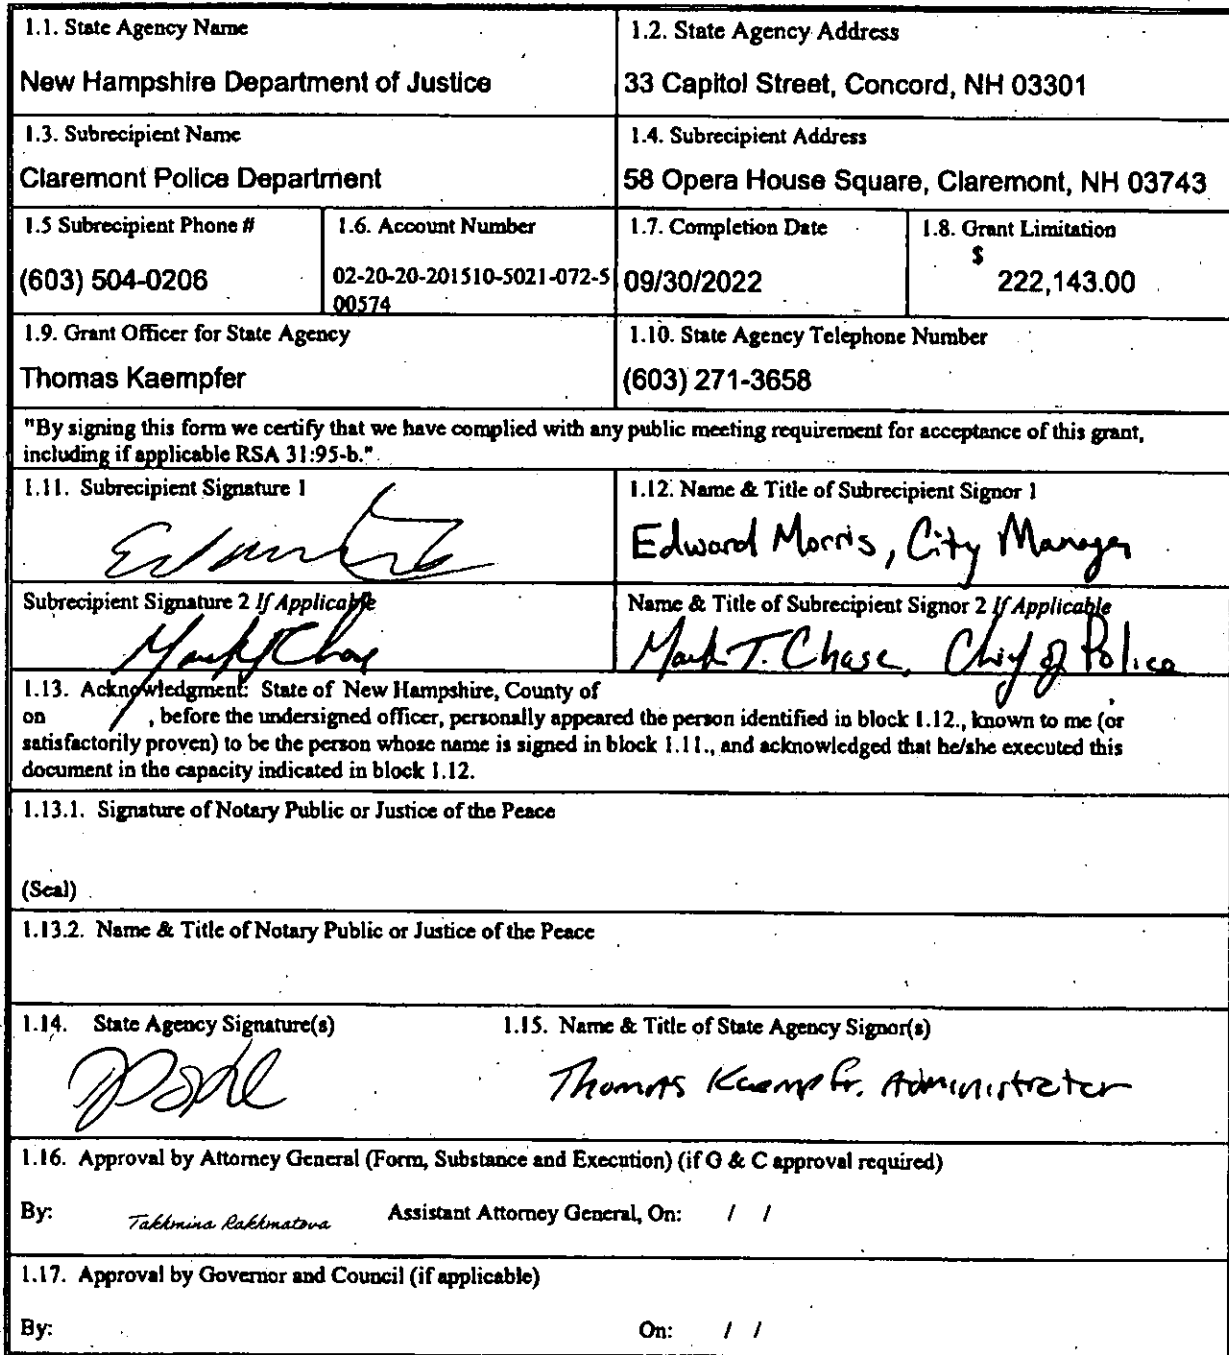 1.1. State Agency Name
New Hampshire Department of Justice
1.2. State Agency Address
33 Capitol Street, Concord, NH 03301
1.3. Subrecipient Name
Claremont Police Department
1.4. Subrecipient Address
58 Opera House Square, Claremont, NH 03743
1.5 Subrecipient Phone #
(603) 504-0206
1.6. Account Number
02-20-20-201510-5021-072-5
00574
1.7. Completion Date
09/30/2022
1.8. Grant Limitation
$
222,143.00
1.9. Grant Officer for State Agency
Thomas Kaempfer
1.10. State Agency Telephone Number
(603) 271-3658
"By signing this form we certify that we have complied with any public meeting requirement for acceptance of this grant,
including if applicable RSA 31:95-b."
1.11. Subrecipient Signature 1
1.12. Name & Title of Subrecipient Signor 1
Edward Morris, City Manager
Subrecipient Signature 2 If Applicable
Name & Title of Subrecipient Signor 2 If Applicable
Mark T. Chase, Chief of Police
1.13. Acknowledgment: State of New Hampshire, County of
on / , before the undersigned officer, personally appeared the person identified in block 1.12., known to me (or
satisfactorily proven) to be the person whose name is signed in block 1.11., and acknowledged that he/she executed this
document in the capacity indicated in block 1.12.
1.13.1. Signature of Notary Public or Justice of the Peace
(Seal)
1.13.2. Name & Title of Notary Public or Justice of the Peace
1.14. State Agency Signature(s)
1.15. Name & Title of State Agency Signor(s)
Thomas Kaempfer, Administrator
1.16. Approval by Attorney General (Form, Substance and Execution) (if G & C approval required)
By: Takhmina Rakhmatova Assistant Attorney General, On: / /
1.17. Approval by Governor and Council (if applicable)
By: On: / /